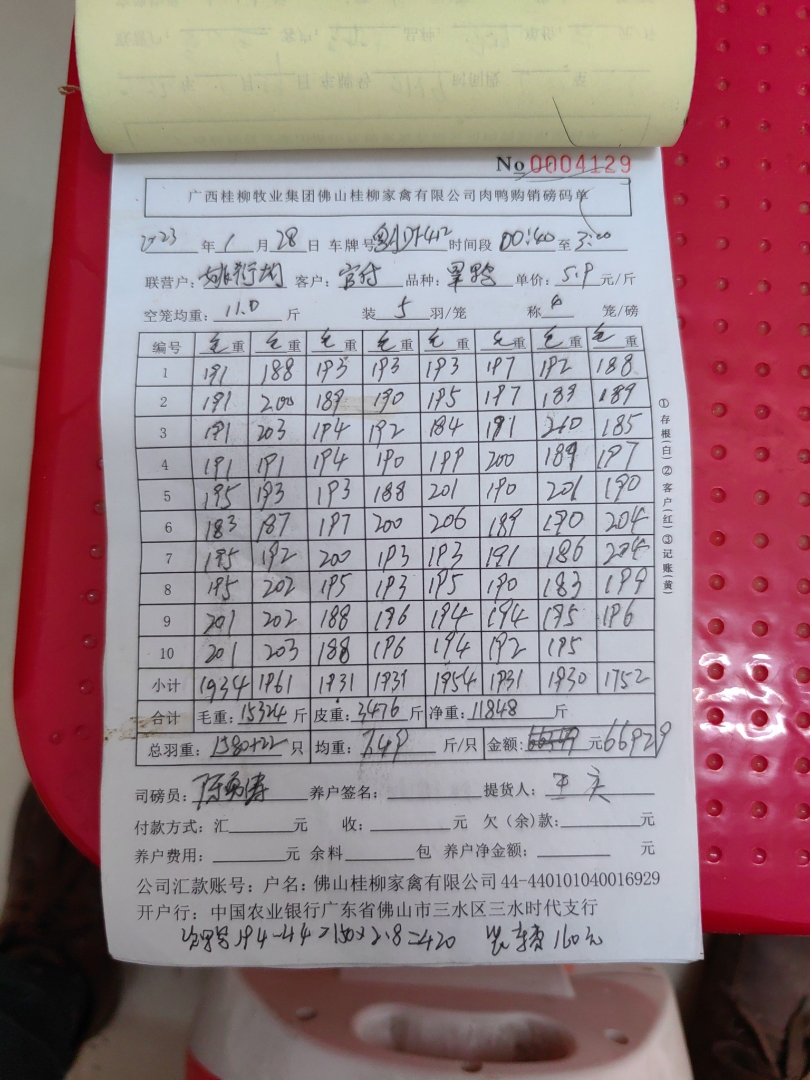 No 0004129
广西桂柳牧业集团佛山桂柳家禽有限公司肉鸭购销磅码单
2023 年 1 月 28 日 车牌号 时间段 00:40 至 3:00
联营户: 客户: 官村 品种: 单价: 5.9 元/斤
空笼均重: 11.0 斤 装 5 羽/笼 称 4 笼/磅
编号 毛重 毛重 毛重 毛重 毛重 毛重 毛重 毛重
1 191 188 193 193 193 197 192 188
2 191 200 189 190 195 197 189 189
3 191 203 194 192 184 191 210 185
4 191 191 194 190 199 200 189 197
5 195 193 193 188 201 190 201 190
6 183 187 197 200 206 189 190 204
7 195 192 200 193 193 191 186 204
8 195 202 195 193 195 190 183 199
9 201 202 188 196 194 194 195 196
10 201 203 188 196 194 192 195
小计 1934 1961 1931 1931 1954 1931 1930 1752
合计 毛重: 15324 斤 皮重: 3476 斤 净重: 11848 斤
总羽重: 1580+22 只 均重: 7.49 斤/只 金额: 元 66929
司磅员: 养户签名: 提货人:
付款方式: 汇 元 收: 元 欠(余)款: 元
养户费用: 元 余料 包 养户净金额: 元
公司汇款账号: 户名: 佛山桂柳家禽有限公司 44-440101040016929
开户行: 中国农业银行广东省佛山市三水区三水时代支行
194-44=150×2.8=420 装车费 160元
①存根(白)②客户(红)③记账(黄)